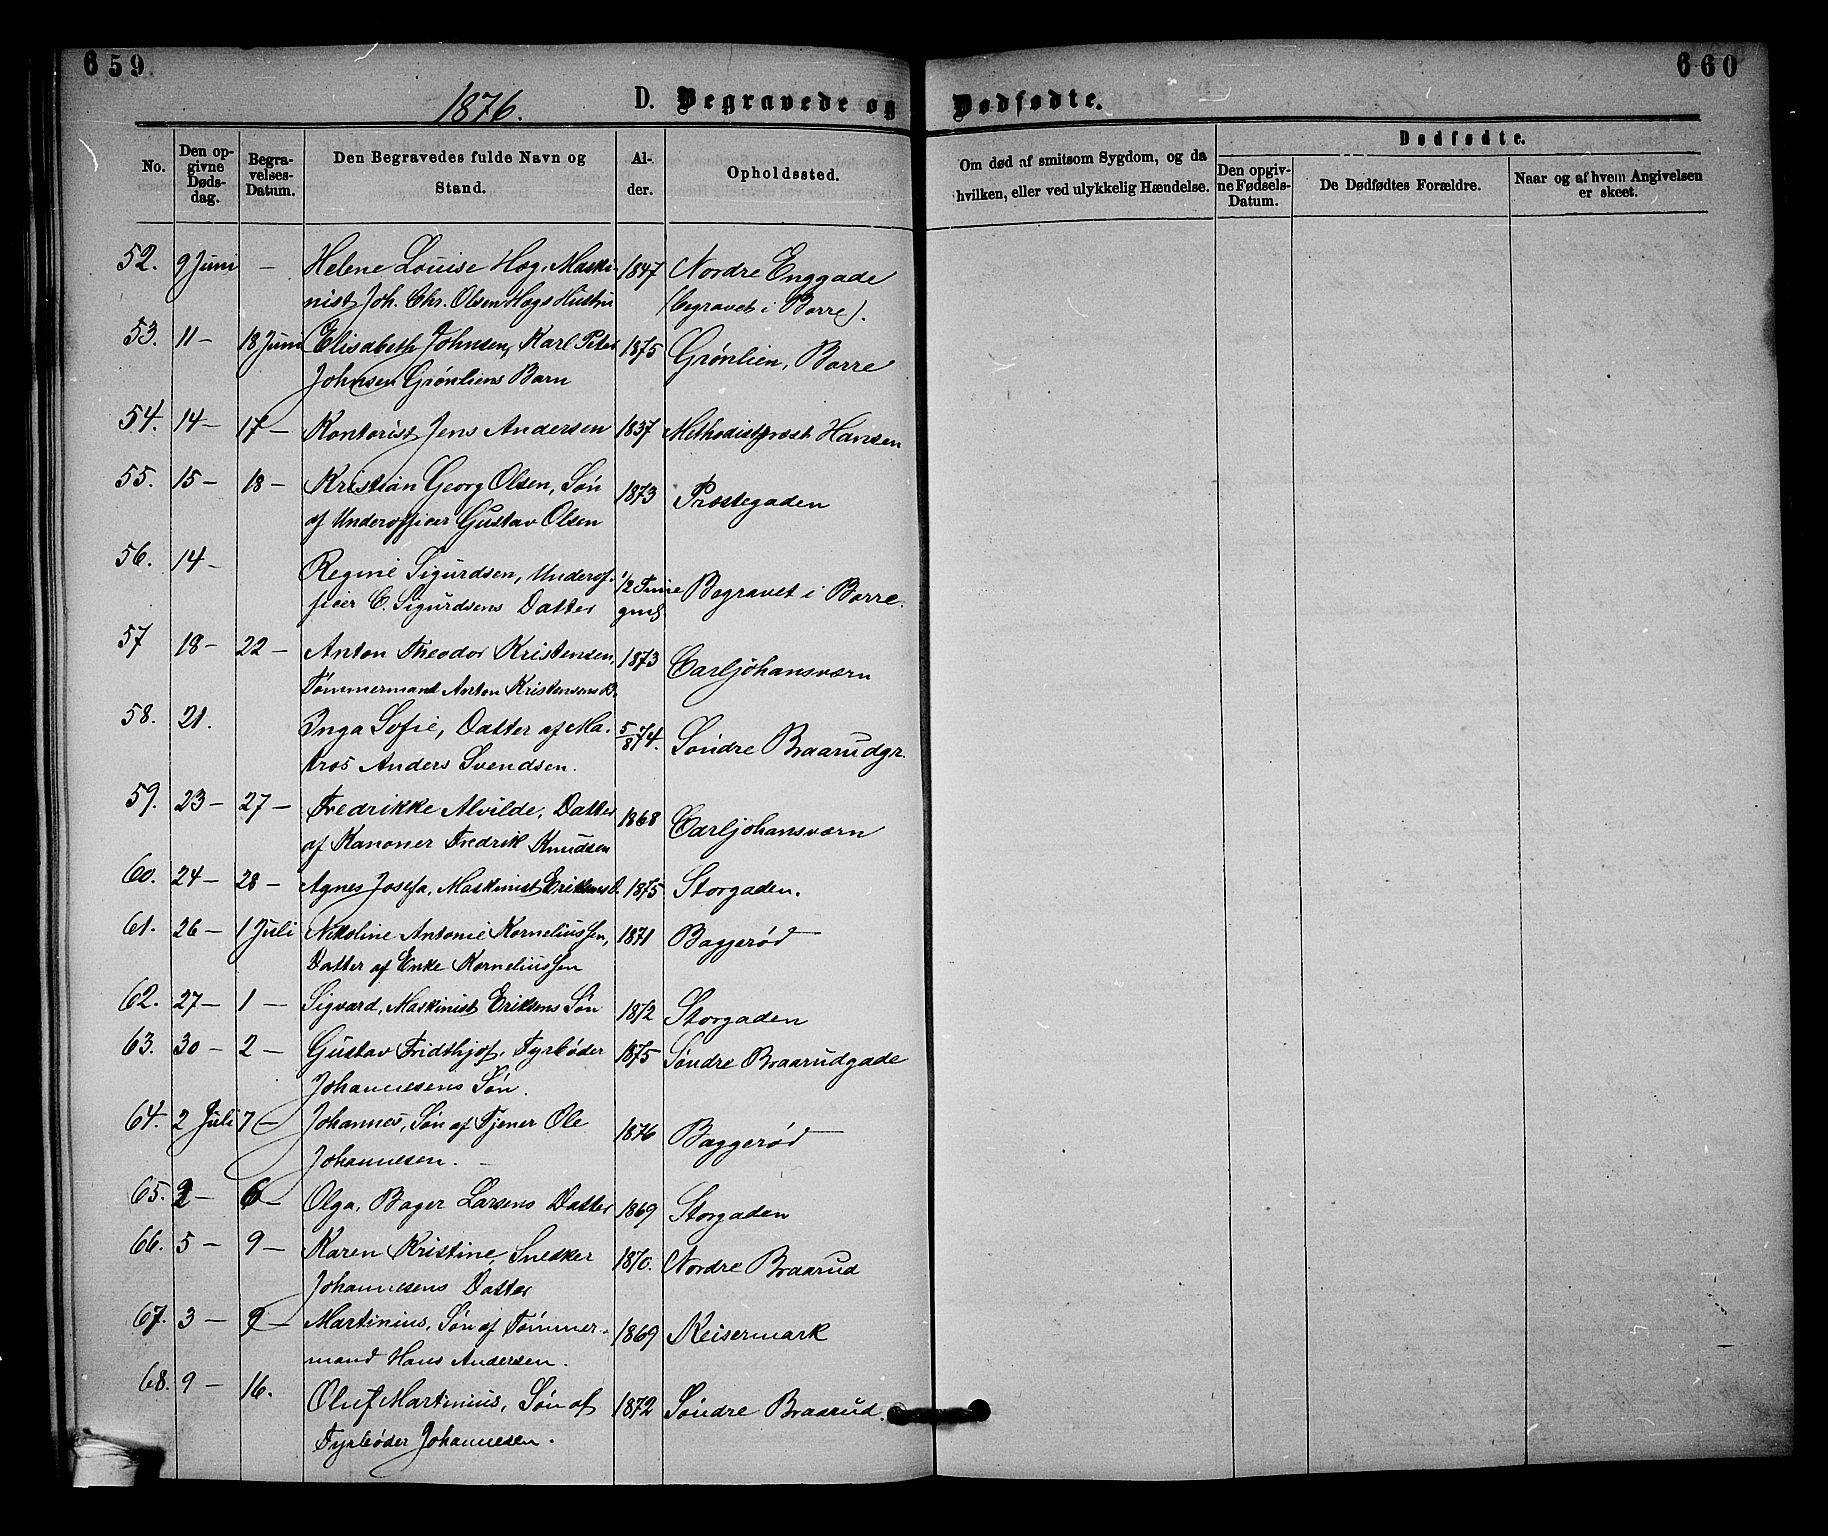 659
660
1876.
D. Begravede og Dødfødte.
No.
Den opgivne Dødsdag.
Begravelses-Datum.
Den Begravedes fulde Navn og Stand.
Alder.
Opholdssted.
Om død af smitsom Sygdom, og da hvilken, eller ved ulykkelig Hændelse.
Dødfødte.
Den opgivne Fødsels-Datum.
De Dødfødtes Forældre.
Naar og af hvem Angivelsen er skeet.
52. 9 Juni – Helene Louise Høg, Maski- 1847 Nordre Enggade
nist Joh. Chr. Olsen Høgs Hustru (begravet i Borre).
53. 11 – 18 Juni Elisabeth Johnsen, Karl Peter 1875 Grønlien, Borre
Johnsen Grønliens Barn
54. 14 – 17 – Kontorist Jens Andersen 1837 Methodistpræst Hansen
55. 15 – 18 – Kristian Georg Olsen, Søn 1873 Præstegaden
af Underofficer Gustav Olsen
56. 14 – Regine Sigurdsen, Underof- 1/2 Time Begravet i Borre.
ficer C. Sigurdsens Datter gml
57 18 – 22 – Anton Theodor Kristensen, 1873 Carljohansværn
Tømmermand Anton Kristensens B.
58. 21. Inga Sofie, Datter af Ma- 5/874. Søndre Braarudgr.
tros Anders Svendsen.
59. 23 – 27 – Fredrikke Alvilde, Datter 1868 Carljohansværn
af Kanoner Fredrik Knudsen
60. 24 – 28 – Agnes Josefa, Maskinist Eriksens D. 1875 Storgaden.
61. 26 – 1 Juli Nikoline Antonie Korneliussen, 1871 Baggerød
Datter af Enke Korneliussen
62. 27 – 1 – Sigvard, Maskinist Eriksens Søn 1872 Storgaden
63. 30 – 2 – Gustav Fridthjof, Fyrbøder 1875 Søndre Braarudgade
Johannesens Søn.
64. 2 Juli 7 – Johannes, Søn af Tjener Ole 1876 Baggerød
Johannesen. –
65. 2 – 6 – Olga, Bager Larsens Datter 1869 Storgaden
66. 5 – 9 – Karen Kristine, Snedker 1870. Nordre Braarud
Johannesens Datter
67. 3 – 9 – Martinius, Søn af Tømmer- 1869 Keisermark
mand Hans Andersen.
68. 9 – 16. Oluf Martinius, Søn af 1872 Søndre Braarud.
Fyrbøder Johannesen.